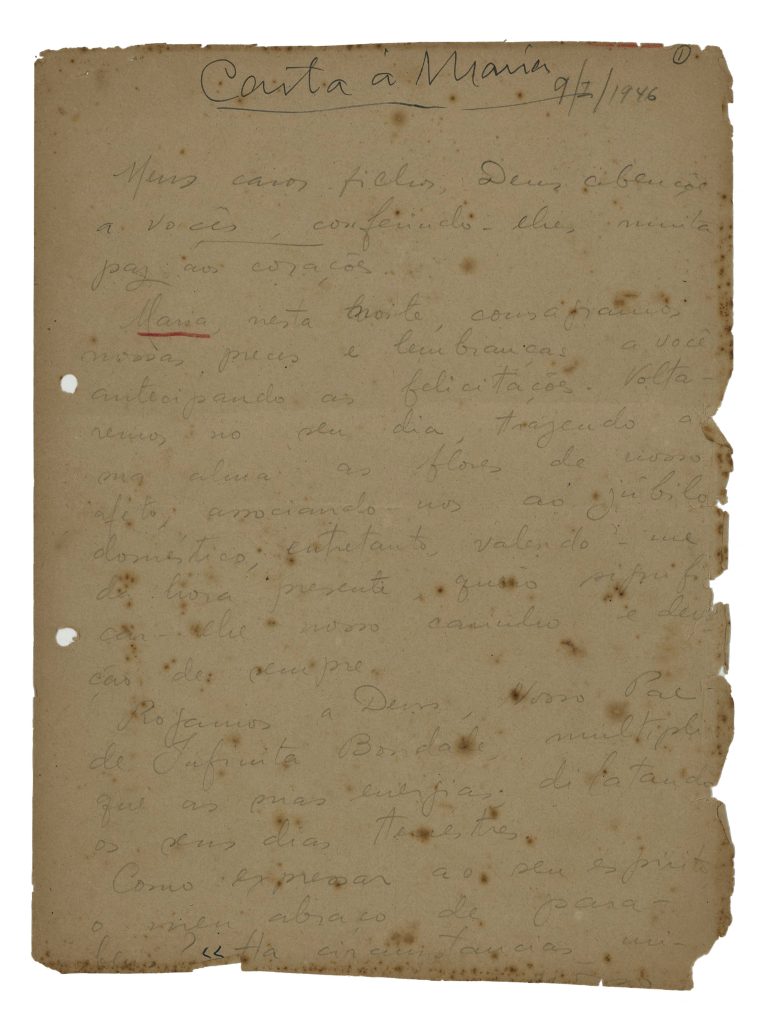 ①
Carta à Maria 9/7/1946
Meus caros filhos, Deus abençoe
a vocês, conferindo-lhes muita
paz aos corações.
Maria, nesta noite, consagramos
nossas preces e lembranças a você
antecipando as felicitações. Volta-
remos no seu dia, trazendo a
sua alma as flores de nosso
afeto, associando nos ao júbilo
doméstico, entretanto, valendo-me
da hora presente, quero signifi
car-lhe nosso carinho e devo
ção de sempre.
Rogamos a Deus, Nosso Pae
de Infinita Bondade, multipli
que as suas energias, dilatando
os seus dias terrestres.
Como expressar ao seu espirito
o meu abraço de para-
bens? « Ha circunstancias